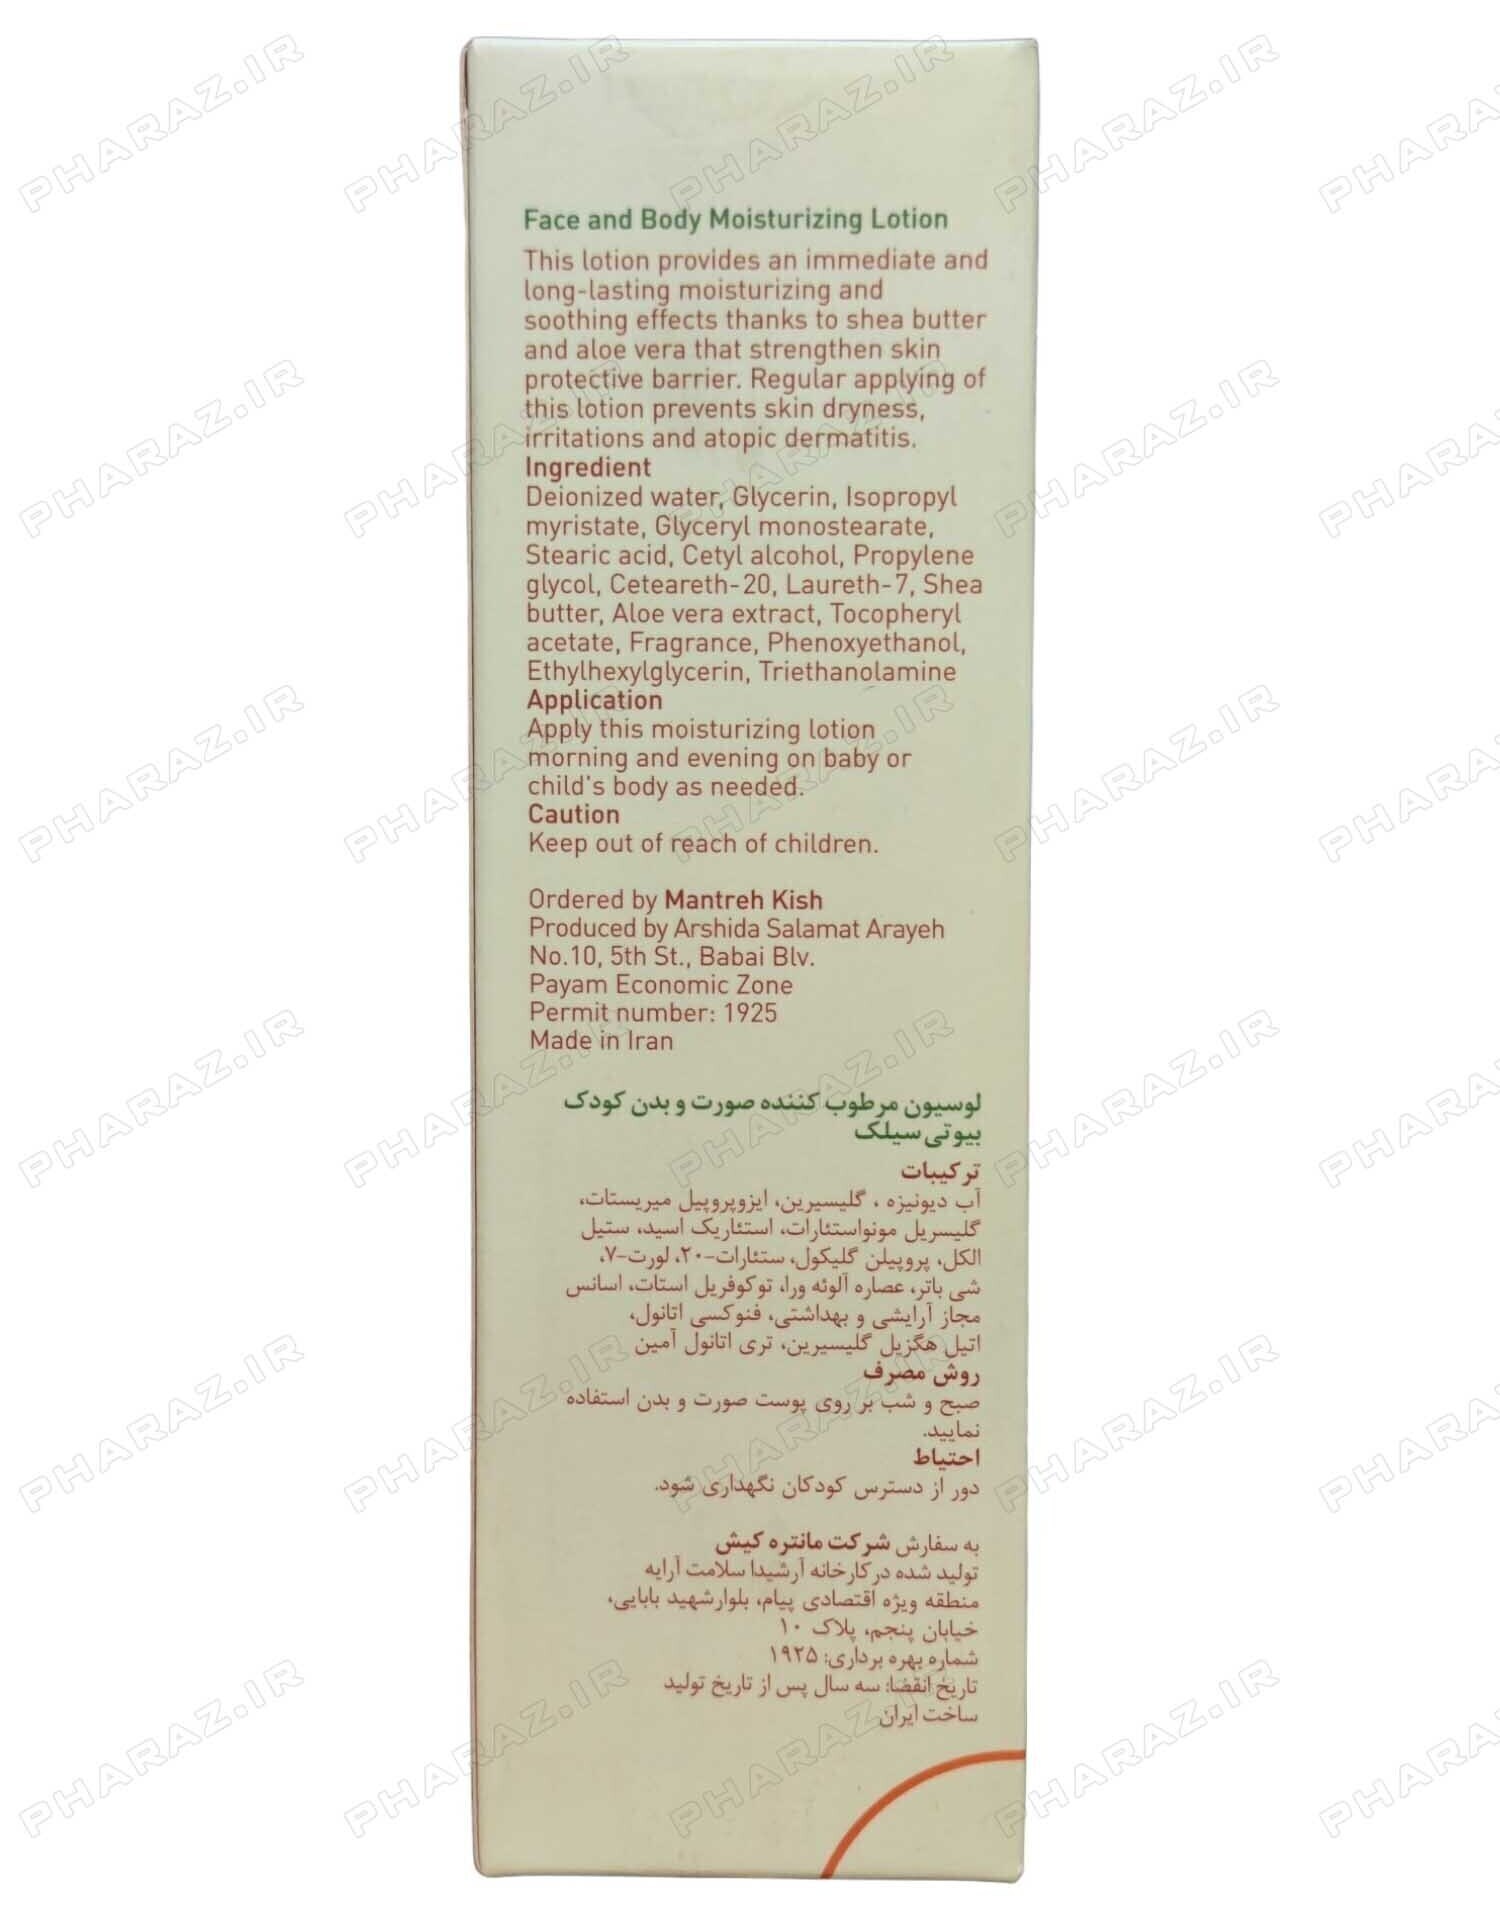 Face and Body Moisturizing Lotion
This lotion provides an immediate and
long-lasting moisturizing and
soothing effects thanks to shea butter
and aloe vera that strengthen skin
protective barrier. Regular applying of
this lotion prevents skin dryness,
irritations and atopic dermatitis.
Ingredient
Deionized water, Glycerin, Isopropyl
myristate, Glyceryl monostearate,
Stearic acid, Cetyl alcohol, Propylene
glycol, Ceteareth-20, Laureth-7, Shea
butter, Aloe vera extract, Tocopheryl
acetate, Fragrance, Phenoxyethanol,
Ethylhexylglycerin, Triethanolamine
Application
Apply this moisturizing lotion
morning and evening on baby or
child's body as needed.
Caution
Keep out of reach of children.
Ordered by Mantreh Kish
Produced by Arshida Salamat Arayeh
No.10, 5th St., Babai Blv.
Payam Economic Zone
Permit number: 1925
Made in Iran
لوسیون مرطوب کننده صورت و بدن کودک
بیوتی سیلک
ترکیبات
آب دیونیزه ، گلیسیرین، ایزوپروپیل میریستات،
گلیسریل مونواستئارات، استئاریک اسید، ستیل
الکل، پروپیلن گلیکول، ستئارات-۲۰، لورت-۷،
شی باتر، عصاره آلوئه ورا، توکوفریل استات، اسانس
مجاز آرایشی و بهداشتی، فنوکسی اتانول،
اتیل هگزیل گلیسیرین، تری اتانول آمین
روش مصرف
صبح و شب بر روی پوست صورت و بدن استفاده
نمایید.
احتیاط
دور از دسترس کودکان نگهداری شود.
به سفارش شرکت مانتره کیش
تولید شده در کارخانه آرشیدا سلامت آرایه
منطقه ویژه اقتصادی پیام، بلوار شهید بابایی،
خیابان پنجم، پلاک ۱۰
شماره بهره برداری: ۱۹۲۵
تاریخ انقضا: سه سال پس از تاریخ تولید
ساخت ایران
PHARAZ.IR